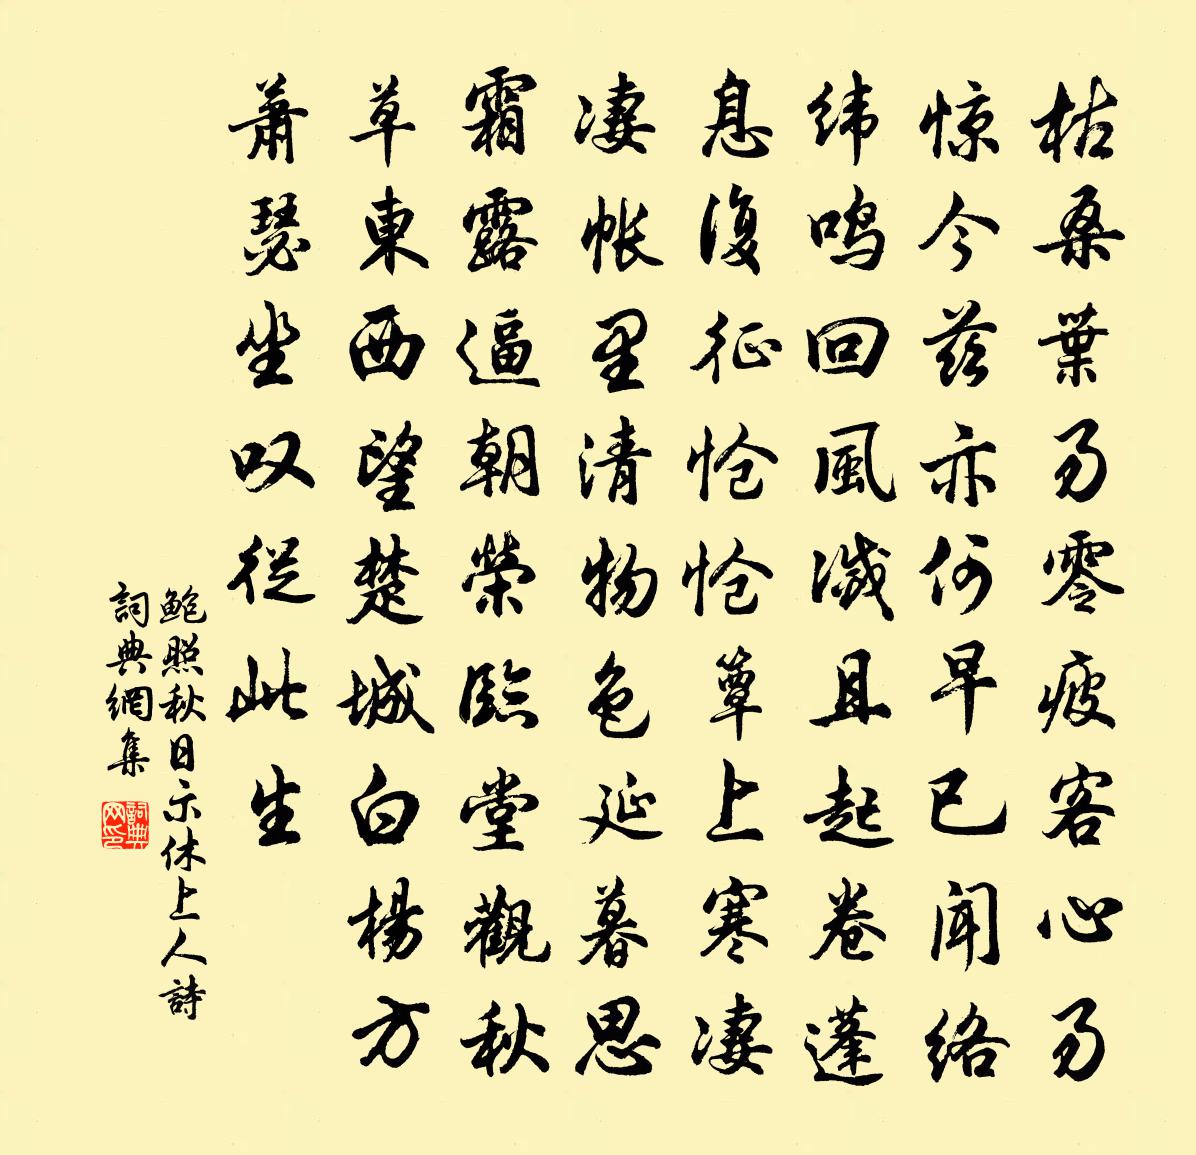 枯桑葉易零疲客心易
惊今兹亦何早已闻络
纬鸣回風滅且起卷蓬
息復征怆怆簟上寒凄
凄帐里清物色延暮思
霜露逼朝榮臨堂觀秋
草東西望楚城白楊方
萧瑟坐叹從此生
鲍照秋日示休上人詩
詞典網集
詞典网印